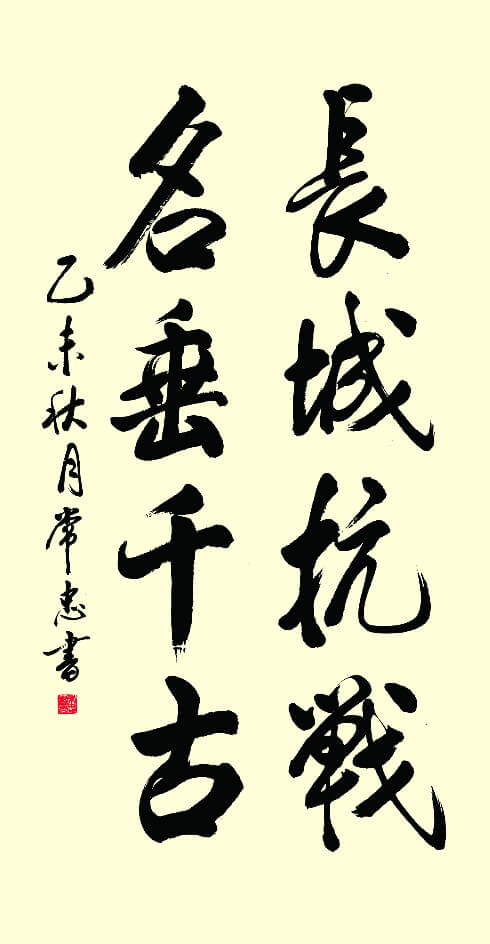 長城抗戰
名垂千古
乙未秋月常忠書